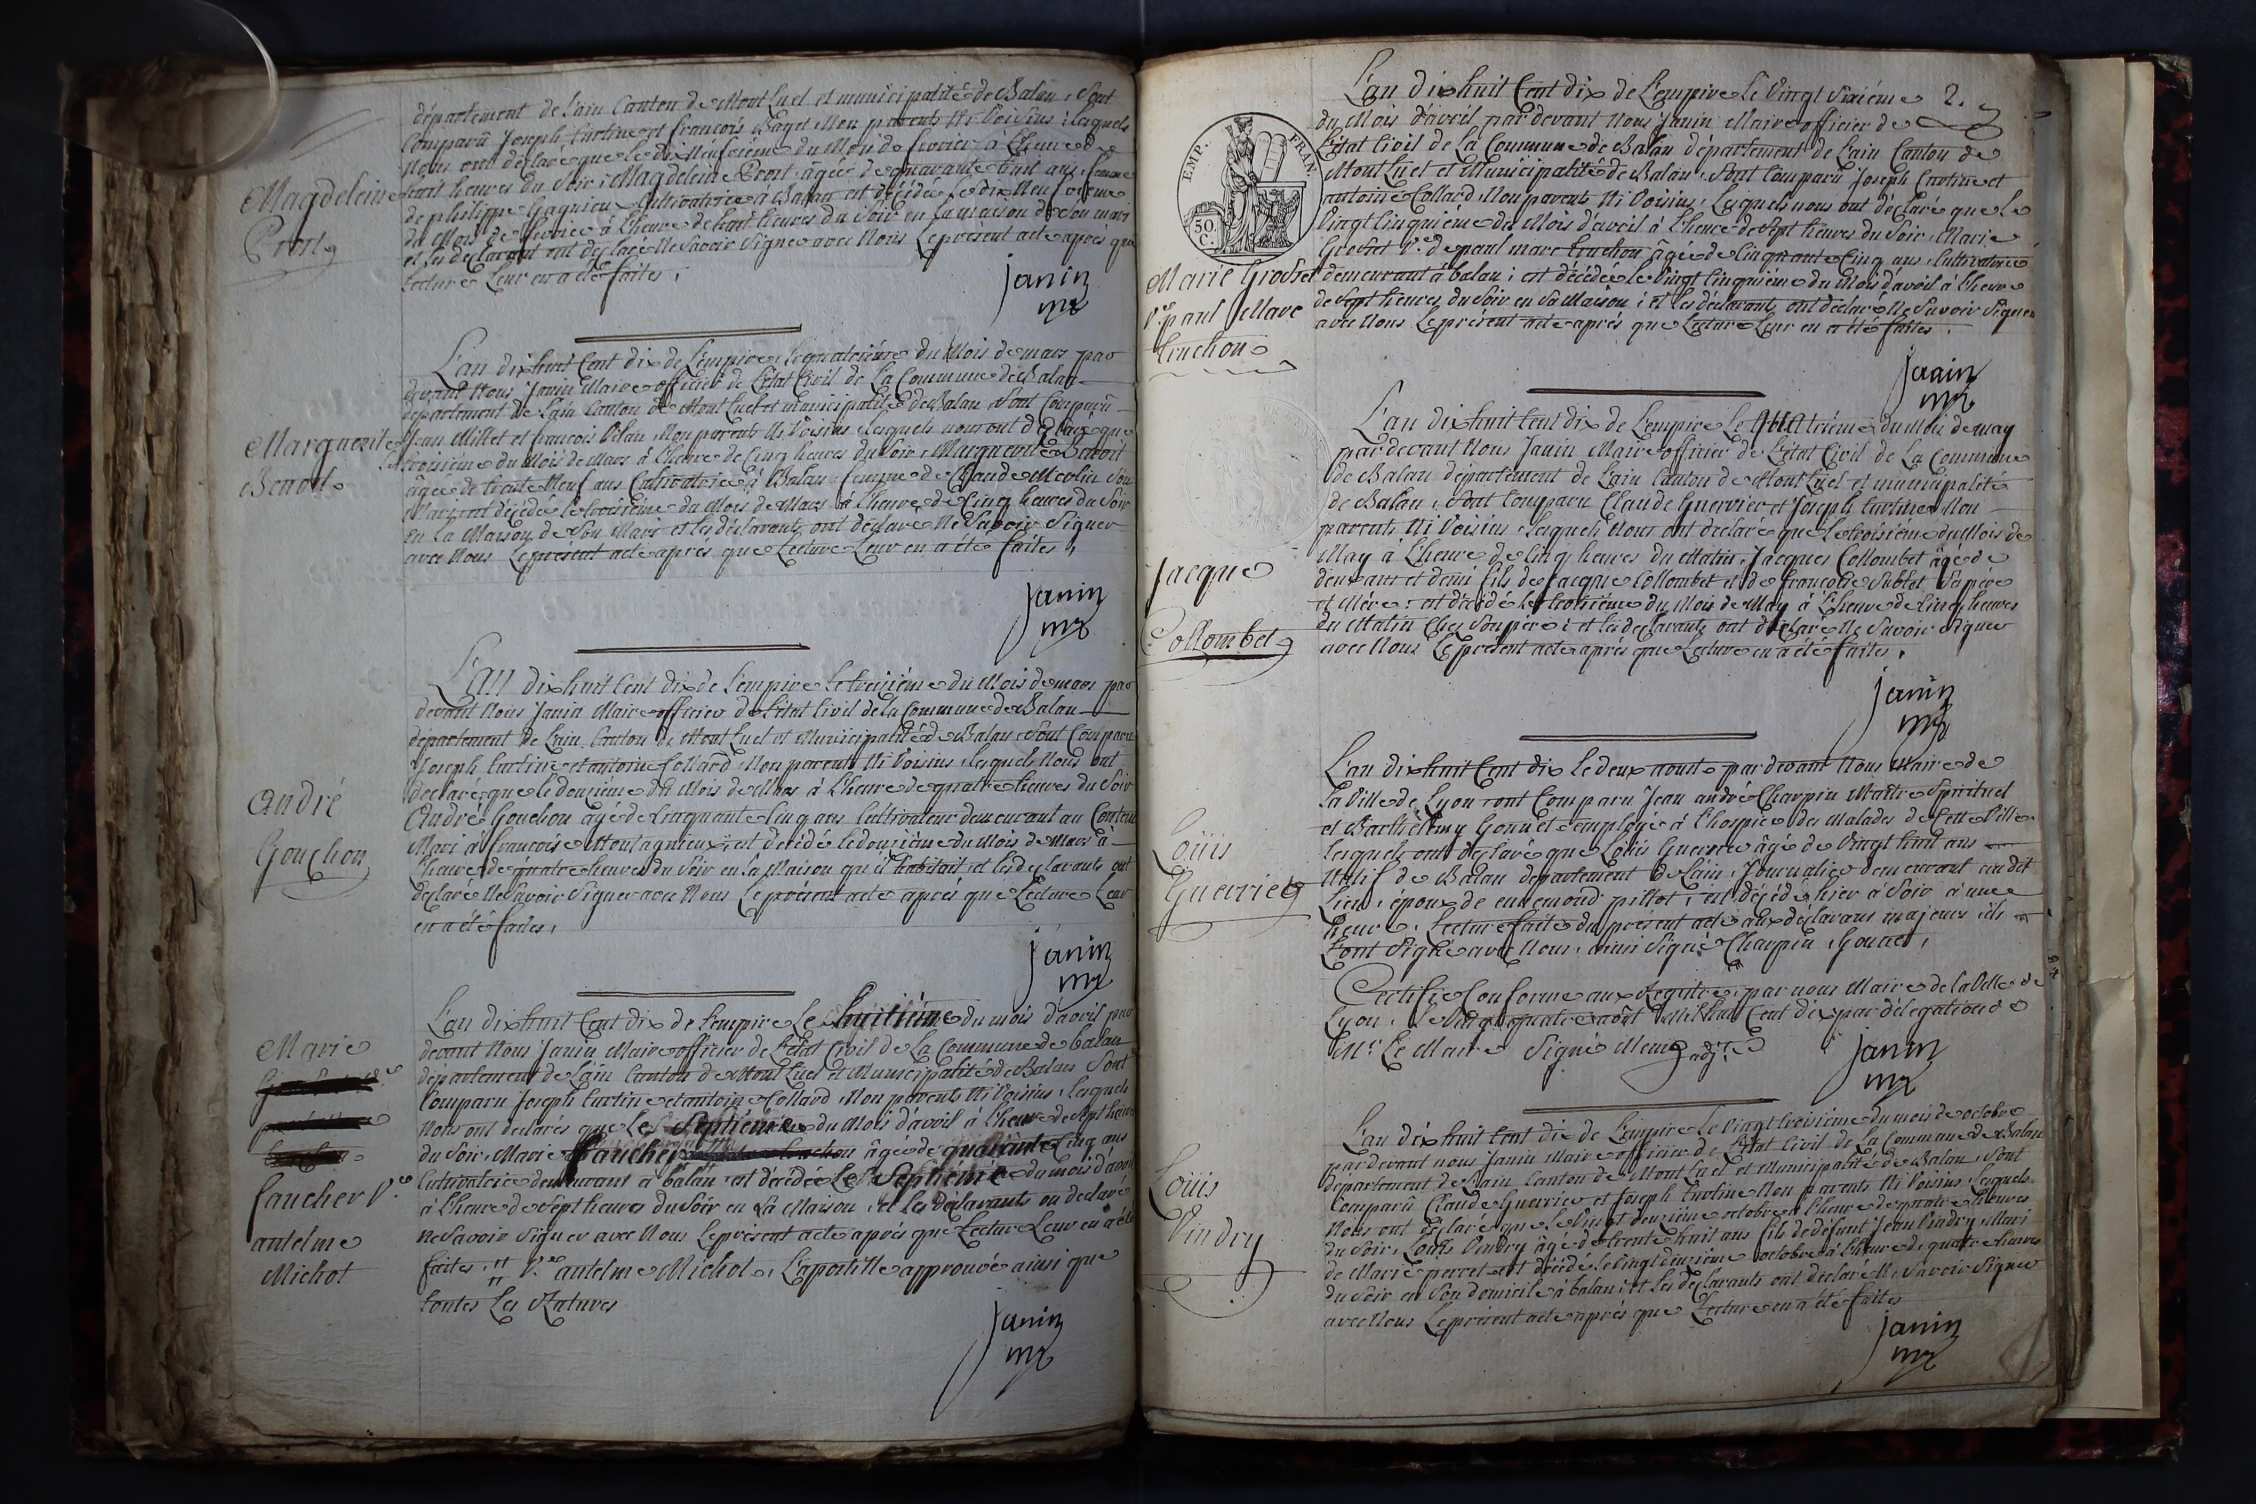 département de Lain Canton de Mont Luel et municipalité de Balan, Sont
Comparû Joseph Curtine et francois Baget Non parents Ni Voisins; lesquels
Nous ont déclaré que le dix Neufvième du Mois de fevrier à L'heure de
huit heures du Soir; Magdeleine Prost âgée de quarante huit ans, femme
de philippe Gagnieu Cultivatrice à Balan est décédée Le dix Neufvième
du Mois de fevrier à L'heure de huit heures du Soir en La maison de Son mari
et les déclarant ont déclaré Ne Savoir Signer avec Nous Le present acte après que
Lecture Leur en a été faites;
Magdeleine
Prost
janin
mre
L'an dix huit Cent dix de L'empire Le quatrième du Mois de mars par
devant Nous Janin Maire officier de L'état Civil de La Commune de Balan
département de Lain Canton de Mont Luel et municipalité de Balan Sont Comparû
Jean Millet et francois Vilan Non parents Ni Voisins, lesquels nous ont déclaré que
troisième du Mois de Mars à L'heure de Cinq heures du Soir, Marguerite Benoit
âgée de trente Neuf ans Cultivatrice à Balan femme de Claude Merlin Son
Mari est décédé le troisième du Mois de Mars à L'heure de Cinq heures du Soir
en La Maison de Son Mari et les déclarants ont déclaré Ne Savoir Signer
avec Nous Le présent acte après que Lecture Leur en a été faites,
Marguerite
Benoit
janin
mre
L'AN dix huit Cent dix de L'empire Le treizième du Mois de mars par
devant Nous Janin Maire officier de L'état Civil de la Commune de Balan
département de Lain Canton de Mont Luel et Municipalité de Balan Sont Comparu
Joseph Curtine et antoine Collard Non parents Ni Voisins, lesquels Nous ont
déclaré; que le douzième du Mois de Mars à L'heure de quatre heures du Soir
André Gouchon âgé de Cinquante Cinq ans Cultivateur demeurant au
Mari à francoise Montagnieux; est décédé le douzième du Mois de Mars à
L'heure de quatre heures du Soir en la Maison qu'il habitoit et les déclarants ont
déclaré Ne Savoir Signer avec Nous Le présent acte après que Lecture Leur
en a été faites,
André
Gouchon
janin
mre
L'an dix huit Cent dix de L'empire Le huitième du mois d'avril par
devant Nous Janin Maire officier de L'état Civil de La Commune de balan
département de Lain Canton de Mont Luel et Municipalité de Balan Sont
Comparu Joseph Curtine et antoine Collard Non parents Ni Voisins, lesquels
Nous ont déclarés que Le Septième du Mois d'avril à L'heure de Sept heures
du Soir, Marie faucher âgée de quarante Cinq ans
Cultivatrice demeurant à balan est décédée Le Septième du mois d'avril
à L'heure de Sept heures du Soir en Sa Maison, et les déclarants on déclaré
Ne Savoir Signer avec Nous Le présent acte après que Lecture Leur en a été
faites. V.ve antelme Michot. L'apostille approuvée ainsi que
toutes Les Ratures
Marie
faucher V.e
antelme
Michot
janin
mre
2.
EMP. FRAN.
50 C.
L'an dix huit Cent dix de L'empire Le Vingt Sixième
du Mois d'avril par devant Nous Janin Maire officier de
L'état Civil de La Commune de Balan département de Lain Canton de
Mont Luel et Municipalité de Balan, Sont Comparû Joseph Curtine et
antoine Collard Non parents Ni Voisins, Lesquels nous ont déclaré que Le
Vingt Cinquième du Mois d'avril à L'heure de Sept heures du Soir, Marie
Grosset V.e de paul marc truchon âgée de Cinquante Cinq ans, Cultivatrice
demeurant à balan; est décédée le Vingt Cinquième du Mois d'avril à L'heure
de Sept heures du Soir en Sa Maison; et les déclarants ont déclaré Ne Savoir Signer
avec Nous Le présent acte après que Lecture Leur en a été faites.
Marie Grosset
V.e paul Marc
truchon
janin
mre
L'an dix huit Cent dix de L'empire Le quatrième du Mois de may
par devant Nous Janin Maire officier de L'état Civil de La Commune
de Balan département de Lain Canton de Mont Luel et municipalité
de Balan, Sont Comparu Claude Guerrier et Joseph Curtine Non
parents Ni Voisins, lesquels Nous ont déclaré que Le troisième du Mois de
May à L'heure de Cinq heures du Matin, Jacques Collombet âgé de
deux ans et demi fils de Jacque Collombet et de francoise Sublet Sa père
et Mère: est décédé Le troisième du Mois de May à L'heure de Cinq heures
du Matin Chez Son père; et les déclarants ont déclaré Ne Savoir Signer
avec Nous Le présent acte après que Lecture en a été faites.
Jacque
Collombet
janin
mre
L'an dix huit Cent dix Le deux aoust par devant Nous Maire de
La Ville de Lyon sont Comparu Jean andré Charpin Maître Spirituel
et Barthélemy Gonnet employé à L'hospice des Malades de Cette Ville
lesquels ont déclaré que Loüis Guerrier âgé de Vingt huit ans
Natif de Balan département de Lain, Journalier demeurant au dit
Lieu, époux de ennemond pillot, est décédé hier à Soir à une
heure, Lecture faite du présent acte aux déclarans majeurs ils
L'ont Signé avec Nous, ainsi Signé Charpin, Gonnet,
Certifié Conforme aux Registre, par nous Maire de la Ville de
Lyon, Le Vingt quatre août Mil huit Cent dix par délégation de
Mr. Le Maire Signé adj.t
Loüis
Guerrier
janin
mre
L'an dix huit Cent dix de L'empire Le Vingt troisième du mois de octobre
par devant nous Janin Maire officier de L'état Civil de La Commune de Balan
département de Lain Canton de Mont Luel et Municipalité de Balan, Sont
Comparû Claude Guerrier et Joseph Curtine Non parents Ni Voisins, Lesquels
Nous ont déclaré que le Vingt deuxième octobre à L'heure de quatre heures
du Soir, Loüis Vindry âgé de trente huit ans fils de défunt Jean Vindry Mari
de Marie perret est décédé Le Vingt deuxième octobre à L'heure de quatre heures
du Soir en Son domicile à balan; et les déclarants ont déclaré Ne Savoir Signer
avec Nous Le présent acte après que Lecture en a été faites
Loüis
Vindry
janin
mre